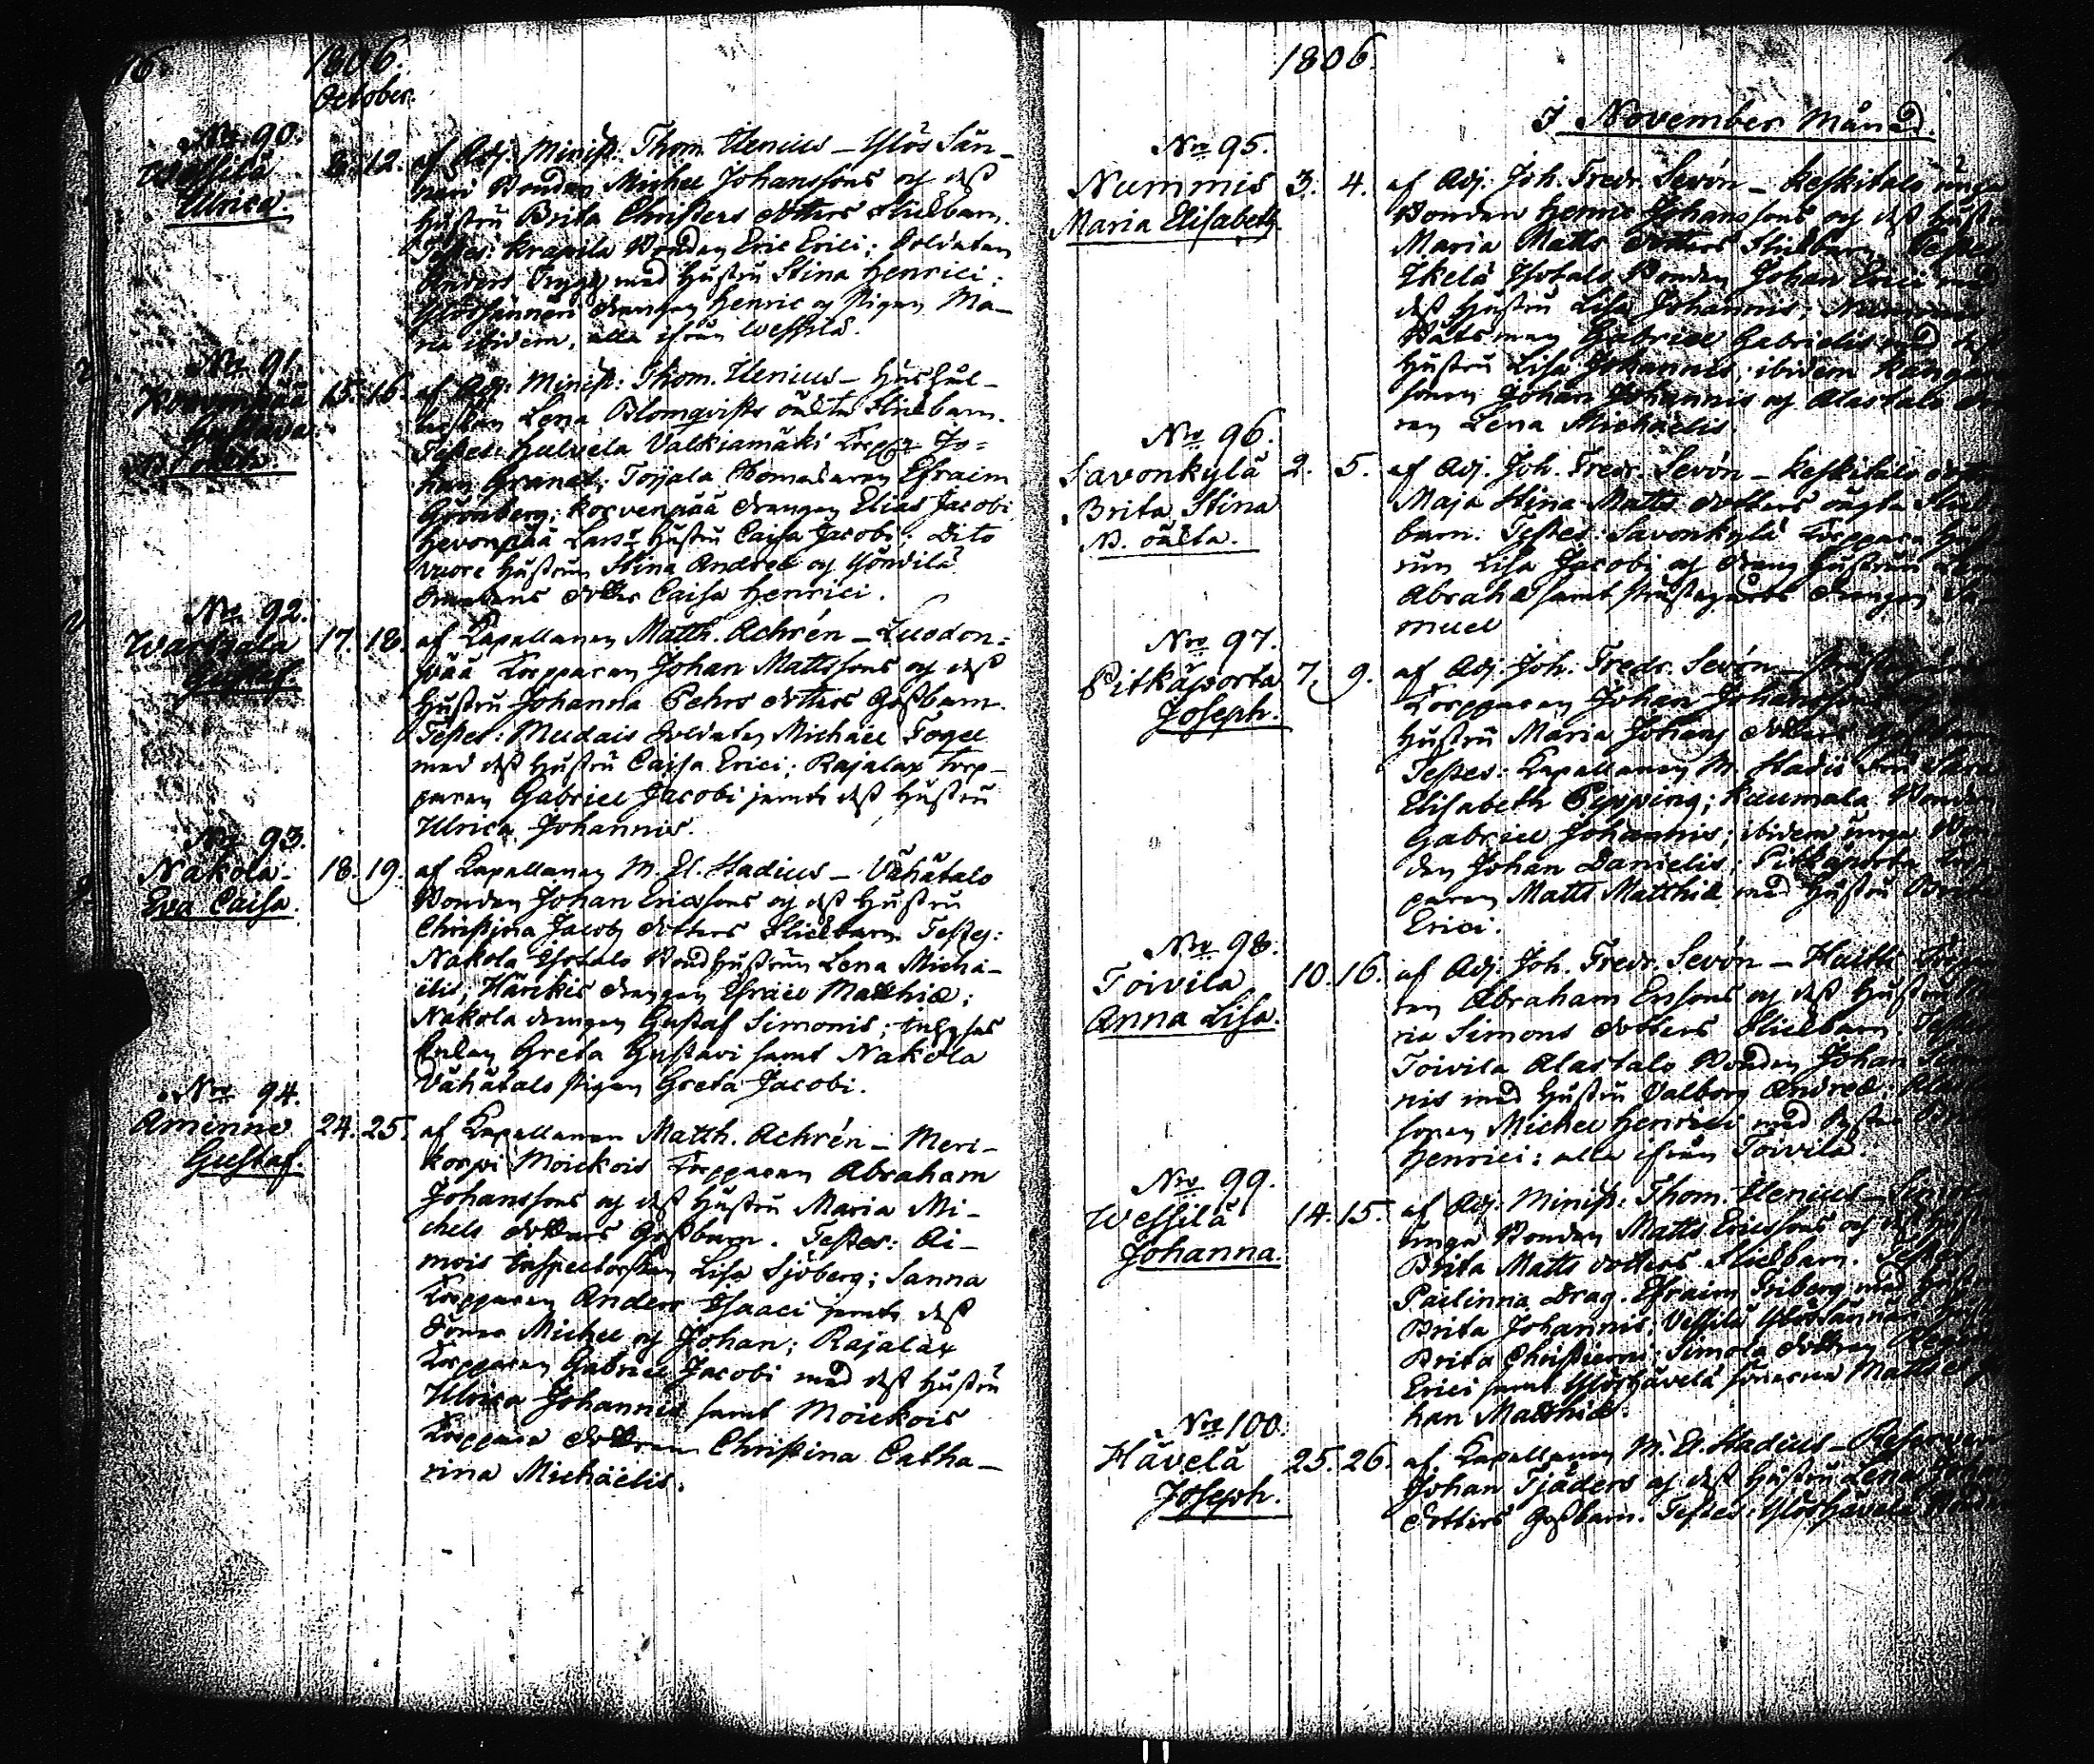 16.
1806.
October.
No 90.
Wessilä
Ulrica.
8. 12. af Adj: Minist: Thom. Ilenius – Ylös Sän-
neri Bonden Michel Johanssons och dess
hustru Brita Christers dotters Flickbarn.
Testes: Krapila Bonden Eric Erici; Soldaten
Anders Trygg med hustru Stina Henrici;
Ylössänneri drängen Henric och Pigan Ma-
ria ibidem, alla ifrån Wessilä.
No 91.
15. 16. af Adj: Minist: Thom. Ilenius – Hushål-
lerskan Lena Blomqvists oäkta Flickbarn.
Testes: Hulvela Valkiamäki Torpar Jo-
han Granat; Toijala Efraim
Grönberg; Korvenpää drängen Elias Jacobi
Hevonpää Lars hustru Caisa Jacobi; Dito
vuore hustrun Stina Andreæ och Yöndilä
dotter Caisa Henrici.
No 92.
Wartsala
Gustaf.
17. 18. af Kapellanen Matth. Achrén – Luodon-
pää Torpparen Johan Mattssons och dess
hustru Johanna Pehrs dotters Gossbarn.
Testes: Muldais Soldaten Michael Fogel
med dess hustru Caisa Erici; Rajalax Torp-
paren Gabriel Jacobi jemte dess hustru
Ulrica Johannis.
No 93.
Nakola
Eva Caisa.
18. 19. af Kapellanen M. El. Stadius – Vähätalo
Bonden Johan Ericssons och dess hustru
Christina Jacobs dotters Flickbarn. Testes:
Nakola Isotalo Bondhustrun Lena Micha-
elis; Härikis drängen Efraim Matthiæ;
Nakola drängen Gustaf Simonis; Inhyses
Enkan Greta Gustavi samt Nakola
Vähätalo Pigan Greta Jacobi.
No 94.
Aminne
Gustaf.
24. 25. af Kapellanen Matth. Achrén – Meri-
korpi Moickois Torpparen Abraham
Johanssons och dess hustru Maria Mi-
chels dotters Gossbarn. Testes: Ai-
mois Inspectorskan Lisa Sjöberg; Sanna
Torpparen Anders Isaaci jemte dess
Söner Michel och Johan; Rajalax
Torpparen Gabriel Jacobi med dess hustru
Ulrica Johannis samt Moickois
Torppare dottren Christina Catha-
rina Michäelis.
1806.
I November Månad.
No 95.
Nummis
Maria Elisabeth.
3. 4. af Adj. Joh. Fredr. Sevón – Keskitalo unga
Bonden Henric Johanssons och dess hustru
Maria Matts dotters Flickbarn. Testes
Ikelä Isotalo Bonden Johan Erici med
dess hustru Lisa Johannis; Nummis
Båtsman Gabriel Gabrielis med dess
hustru Lisa Johannis; ibidem
sonen Johan Johannis och Alastalo
Lena Michaelis.
No 96.
Savonkylä
Brita Stina
N. oäkta.
2. 5. af Adj. Joh. Fredr. Sevón – Keskitalo
Maja Stina Matts dotters oägta Flick-
barn. Testes: Savonkylä Torppare hust-
run Lisa Jacobi och dräng hustrun
Abrahæ samt prästegårds drängen Sa-
muel
No 97.
Pitkäporta
Joseph.
7. 9. af Adj. Joh: Fredr. Sevón –
Torpparen Johan Johanssons
hustru Maria Johans dotters Gossbarn
Testes: Kapellanen M. Stadii Fru Sara
Elisabeth Pepping; Kaumala Bonden
Gabriel Johannis; ibidem unga Bon-
den Johan Danielis; Pitkäporta Torp-
paren Matts Matthiæ med hustru
Erici.
No 98.
Toivila
Anna Lisa.
10. 16. af Adj. Joh. Fredr. Sevón – Huitti
ren Abraham Ersons och dess hustru Ma-
ria Simons dotters Flickbarn. Testes
Toivila Alastalo Bonden Johan
nis med hustru Valborg Andreæ;
sonen Michel Henrici med Syster
Henrici: alla ifrån Toivila.
No 99.
Wessilä
Johanna.
14. 15. af Adj. Minist: Thom. Ilenius – Simola
unga Bonden Matts Ericssons och dess hustru
Brita Matts dotters Flickbarn. Testes
Pailinna Drag. Efraim Friberg med hustru
Brita Johannis; Vessilä Ylössänneri
Brita Christierni; Simola dottren
Erici samt Ylöshävelä sönerna Matts och Jo-
han Matthiæ.
No 100.
Hävelä
Joseph.
25. 26. af Kapellanen M. El. Stadius –
Johan Tjäders och dess hustru Lena
dotters Gossbarn. Testes: Ylöshävelä